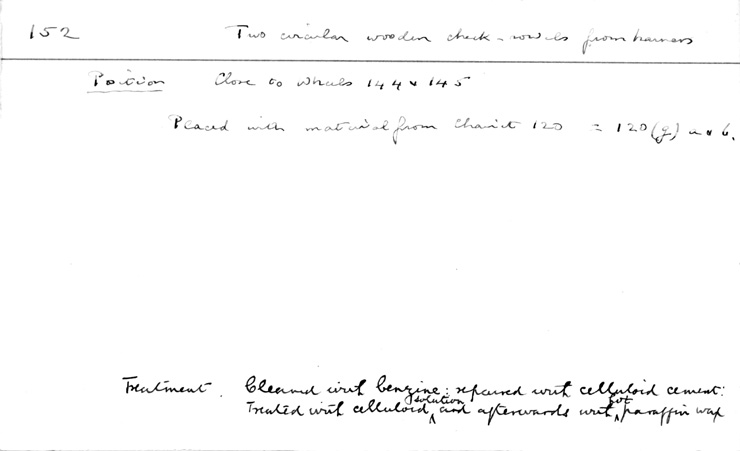 152 Two circular wooden check-rowels from harness
Position Close to wheels 144 & 145
Placed with material from Chariot 120 = 120(g) 6.
Treatment. Cleaned with benzine: repaired with celluloid cement:
Treated with celluloid solution and afterwards with hot paraffin wax